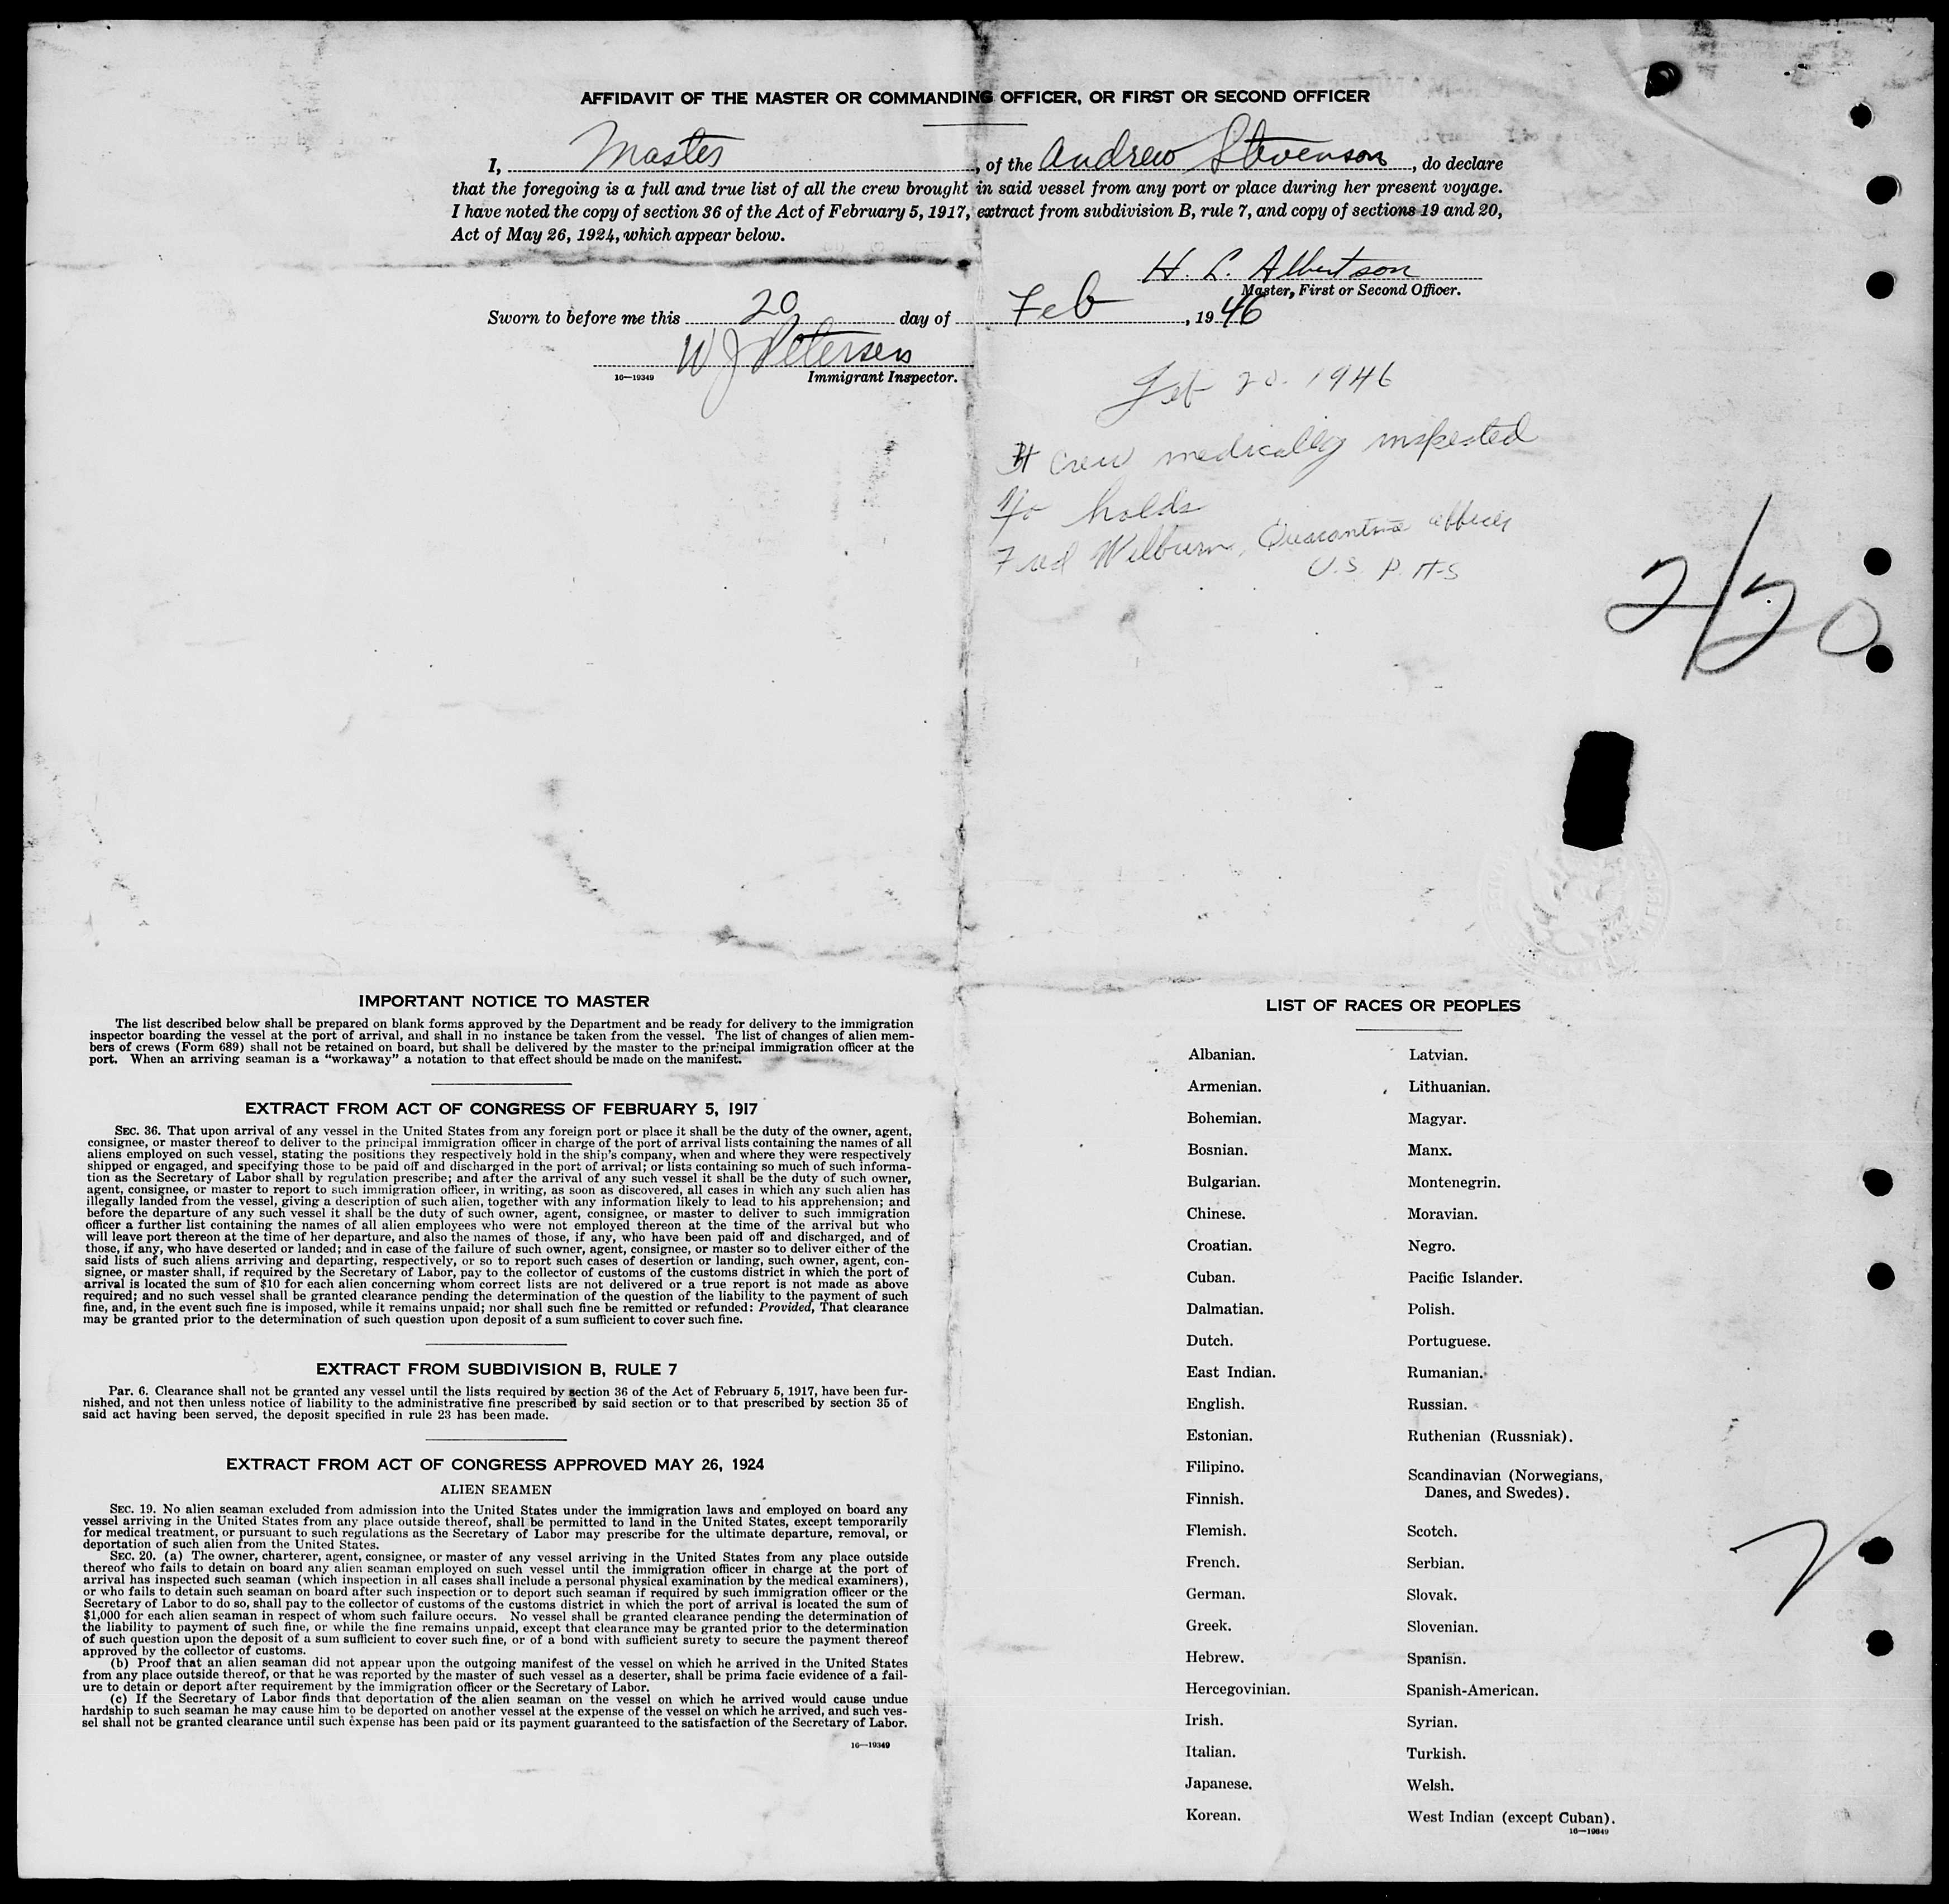 AFFIDAVIT OF THE MASTER OR COMMANDING OFFICER, OR FIRST OR SECOND OFFICER
I, Master, of the Andrew Stevenson, do declare
that the foregoing is a full and true list of all the crew brought in said vessel from any port or place during her present voyage.
I have noted the copy of section 36 of the Act of February 5, 1917, extract from subdivision B, rule 7, and copy of sections 19 and 20,
Act of May 26, 1924, which appear below.
H. L. Albertson
Master, First or Second Officer.
Sworn to before me this 20 day of Feb, 1946
W J Petersen
16—19349 Immigrant Inspector.
Feb 20. 1946
Crew medically inspected
holds
Fred Wilburn, Quarantine officer
U.S. P. H-S
2/20
IMPORTANT NOTICE TO MASTER
The list described below shall be prepared on blank forms approved by the Department and be ready for delivery to the immigration
inspector boarding the vessel at the port of arrival, and shall in no instance be taken from the vessel. The list of changes of alien mem-
bers of crews (Form 689) shall not be retained on board, but shall be delivered by the master to the principal immigration officer at the
port. When an arriving seaman is a “workaway” a notation to that effect should be made on the manifest.
EXTRACT FROM ACT OF CONGRESS OF FEBRUARY 5, 1917
SEC. 36. That upon arrival of any vessel in the United States from any foreign port or place it shall be the duty of the owner, agent,
consignee, or master thereof to deliver to the principal immigration officer in charge of the port of arrival lists containing the names of all
aliens employed on such vessel, stating the positions they respectively hold in the ship's company, when and where they were respectively
shipped or engaged, and specifying those to be paid off and discharged in the port of arrival; or lists containing so much of such informa-
tion as the Secretary of Labor shall by regulation prescribe; and after the arrival of any such vessel it shall be the duty of such owner,
agent, consignee, or master to report to such immigration officer, in writing, as soon as discovered, all cases in which any such alien has
illegally landed from the vessel, giving a description of such alien, together with any information likely to lead to his apprehension; and
before the departure of any such vessel it shall be the duty of such owner, agent, consignee, or master to deliver to such immigration
officer a further list containing the names of all alien employees who were not employed thereon at the time of the arrival but who
will leave port thereon at the time of her departure, and also the names of those, if any, who have been paid off and discharged, and of
those, if any, who have deserted or landed; and in case of the failure of such owner, agent, consignee, or master so to deliver either of the
said lists of such aliens arriving and departing, respectively, or so to report such cases of desertion or landing, such owner, agent, con-
signee, or master shall, if required by the Secretary of Labor, pay to the collector of customs of the customs district in which the port of
arrival is located the sum of $10 for each alien concerning whom correct lists are not delivered or a true report is not made as above
required; and no such vessel shall be granted clearance pending the determination of the question of the liability to the payment of such
fine, and, in the event such fine is imposed, while it remains unpaid; nor shall such fine be remitted or refunded: Provided, That clearance
may be granted prior to the determination of such question upon deposit of a sum sufficient to cover such fine.
EXTRACT FROM SUBDIVISION B, RULE 7
Par. 6. Clearance shall not be granted any vessel until the lists required by section 36 of the Act of February 5, 1917, have been fur-
nished, and not then unless notice of liability to the administrative fine prescribed by said section or to that prescribed by section 35 of
said act having been served, the deposit specified in rule 23 has been made.
EXTRACT FROM ACT OF CONGRESS APPROVED MAY 26, 1924
ALIEN SEAMEN
SEC. 19. No alien seaman excluded from admission into the United States under the immigration laws and employed on board any
vessel arriving in the United States from any place outside thereof, shall be permitted to land in the United States, except temporarily
for medical treatment, or pursuant to such regulations as the Secretary of Labor may prescribe for the ultimate departure, removal, or
deportation of such alien from the United States.
SEC. 20. (a) The owner, charterer, agent, consignee, or master of any vessel arriving in the United States from any place outside
thereof who fails to detain on board any alien seaman employed on such vessel until the immigration officer in charge at the port of
arrival has inspected such seaman (which inspection in all cases shall include a personal physical examination by the medical examiners),
or who fails to detain such seaman on board after such inspection or to deport such seaman if required by such immigration officer or the
Secretary of Labor to do so, shall pay to the collector of customs of the customs district in which the port of arrival is located the sum of
$1,000 for each alien seaman in respect of whom such failure occurs. No vessel shall be granted clearance pending the determination of
the liability to payment of such fine, or while the fine remains unpaid, except that clearance may be granted prior to the determination
of such question upon the deposit of a sum sufficient to cover such fine, or of a bond with sufficient surety to secure the payment thereof
approved by the collector of customs.
(b) Proof that an alien seaman did not appear upon the outgoing manifest of the vessel on which he arrived in the United States
from any place outside thereof, or that he was reported by the master of such vessel as a deserter, shall be prima facie evidence of a fail-
ure to detain or deport after requirement by the immigration officer or the Secretary of Labor.
(c) If the Secretary of Labor finds that deportation of the alien seaman on the vessel on which he arrived would cause undue
hardship to such seaman he may cause him to be deported on another vessel at the expense of the vessel on which he arrived, and such ves-
sel shall not be granted clearance until such expense has been paid or its payment guaranteed to the satisfaction of the Secretary of Labor.
16—19349
LIST OF RACES OR PEOPLES
Albanian.
Armenian.
Bohemian.
Bosnian.
Bulgarian.
Chinese.
Croatian.
Cuban.
Dalmatian.
Dutch.
East Indian.
English.
Estonian.
Filipino.
Finnish.
Flemish.
French.
German.
Greek.
Hebrew.
Hercegovinian.
Irish.
Italian.
Japanese.
Korean.
Latvian.
Lithuanian.
Magyar.
Manx.
Montenegrin.
Moravian.
Negro.
Pacific Islander.
Polish.
Portuguese.
Rumanian.
Russian.
Ruthenian (Russniak).
Scandinavian (Norwegians,
Danes, and Swedes).
Scotch.
Serbian.
Slovak.
Slovenian.
Spanish.
Spanish-American.
Syrian.
Turkish.
Welsh.
West Indian (except Cuban).
16—19349